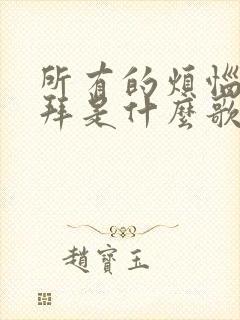 所有的煩惱
拜是什麼歌
趙寶玉